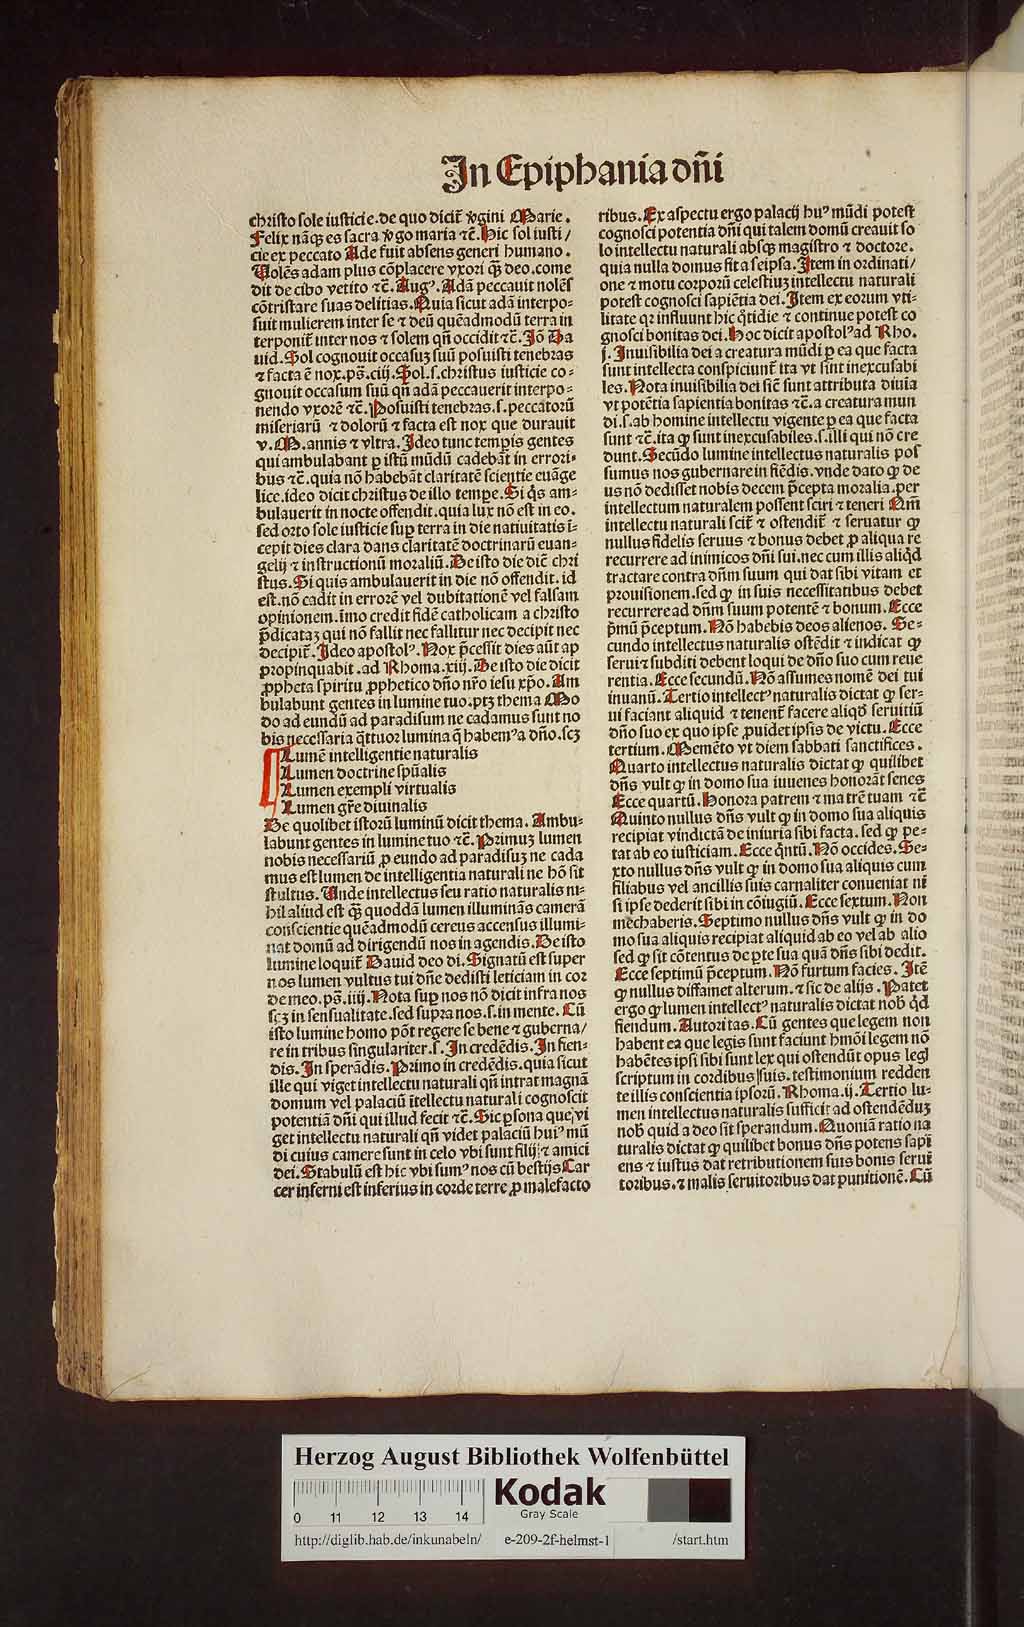 In Epiphania dñi
christo sole iusticie.de quo dicit̃ v̾gini Marie.
Felix nãqꝫ es sacra v̾go maria ⁊c̃. Hic sol iusti/
cie ex peccato Ade fuit absens generi humano.
Volẽs adam plus cõplacere vxori q̃ꝫ deo.come
dit de cibo vetito ⁊c̃. Augꝰ. Adã peccauit nolẽs
cõtristare suas delitias. Quia sicut adã interpo-
suit mulierem inter se ⁊ deũ quẽadmodũ terra in
terponit̃ inter nos ⁊ solem qñ occidit ⁊c̃. Jõ Da
uid. Sol cognouit occasuꝫ suũ posuisti tenebras
⁊ facta ẽ nox.ps̃.ciij. Sol.s.christus iusticie co-
gnouit occasum suũ qñ adã peccauerit interpo-
nendo vxorẽ ⁊c̃. Posuisti tenebras.s.peccatorũ
miseriarũ ⁊ dolorũ ⁊ facta est nox que durauit
v.M.annis ⁊ vltra. Ideo tunc tempis gentes
qui ambulabant ꝑ istũ mũdũ cadebãt in errori-
bus ⁊c̃.quia nõ habebãt claritatẽ scientie euãge
lice.ideo dicit christus de illo tempe. Si q̃s am-
bulauerit in nocte offendit.quia lux nõ est in eo.
sed orto sole iusticie suꝑ terra in die natiuitatis ĩ-
cepit dies clara dans claritatẽ doctrinarũ euan-
gelij ⁊ instructionũ moraliũ. De isto die dic̃ chri
stus. Si quis ambulauerit in die nõ offendit.id
est.nõ cadit in errorẽ vel dubitationẽ vel falsam
opinionem.imo credit fidẽ catholicam a christo
p̃dicataꝫ qui nõ fallit nec fallitur nec decipit nec
decipit̃. Ideo apostolꝰ. Nox p̃cessit dies aũt ap
propinquabit.ad Rhoma.xiij. De isto die dicit
ꝓpheta spiritu ꝓphetico dño nr̃o iesu xp̃o. Am
bulabunt gentes in lumine tuo.ptꝫ thema Mo
do ad eundũ ad paradisum ne cadamus sunt no
bis necessaria q̃ttuor lumina q̃ habemꝰ a dño.scꝫ
Lumẽ intelligentie naturalis
Lumen doctrine sp̃ualis
Lumen exempli virtualis
Lumen gr̃e diuinalis
De quolibet istorũ luminũ dicit thema. Ambu-
labunt gentes in lumine tuo ⁊c̃. Primuꝫ lumen
nobis necessariũ ꝓ eundo ad paradisuꝫ ne cada
mus est lumen de intelligentia naturali ne hõ sit
stultus. Unde intellectus seu ratio naturalis ni-
hil aliud est q̃ꝫ quoddã lumen illuminãs camerã
conscientie quẽadmodũ cereus accensus illumi-
nat domũ ad dirigendũ nos in agendis. De isto
lumine loquit̃ Dauid deo di. Signatũ est super
nos lumen vultus tui dñe dedisti leticiam in cor
de meo.ps̃.iiij. Nota suꝑ nos nõ dicit infra nos
scꝫ in sensualitate.sed supra nos.s.in mente. Cũ
isto lumine homo põt regere se bene ⁊ guberna/
re in tribus singulariter.s. In credẽdis. In fien-
dis. In sperãdis. Primo in credẽdis.quia sicut
ille qui viget intellectu naturali qñ intrat magnã
domum vel palaciũ ĩtellectu naturali cognoscit
potentiã dñi qui illud fecit ⁊c̃. Sic ꝑsona que vi
get intellectu naturali qñ videt palaciũ huiꝰ mũ
di cuius camere sunt in celo vbi sunt filij ⁊ amici
dei. Stabulũ est hic vbi sumꝰ nos cũ bestijs Car
cer inferni est inferius in corde terre ꝓ malefacto
ribus. Ex aspectu ergo palacij huꝰ mũdi potest
cognosci potentia dñi qui talem domũ creauit so
lo intellectu naturali absqꝫ magistro ⁊ doctore.
quia nulla domus fit a seipsa. Item in ordinati/
one ⁊ motu corporũ celestiuꝫ intellectu naturali
potest cognosci sapiẽtia dei. Item ex eorum vti-
litate qꝛ influunt hic q̃tidie ⁊ continue potest co
gnosci bonitas dei. Hoc dicit apostolꝰ ad Rho.
j. Inuisibilia dei a creatura mũdi ꝑ ea que facta
sunt intellecta conspiciunt̃ ita vt sint inexcusabi
les. Nota inuisibilia dei sic̃ sunt attributa diuia
vt potẽtia sapientia bonitas ⁊c̃.a creatura mun
di.s.ab homine intellectu vigente ꝑ ea que facta
sunt ⁊c̃.ita ꝙ sunt inexcusabiles.s.illi qui nõ cre
dunt. Secũdo lumine intellectus naturalis pos
sumus nos gubernare in fiẽdis.vnde dato ꝙ de
us nõ dedisset nobis decem p̃cepta moralia.per
intellectum naturalem possent sciri ⁊ teneri Nam̃
intellectu naturali scit̃ ⁊ ostendit̃ ⁊ seruatur ꝙ
nullus fidelis seruus ⁊ bonus debet ꝓ aliqua re
recurrere ad inimicos dñi sui.nec cum illis aliq̃d
tractare contra dñm suum qui dat sibi vitam et
prouisionem.sed ꝙ in suis necessitatibus debet
recurrere ad dñm suum potentẽ ⁊ bonum. Ecce
p̃mũ p̃ceptum. Nõ habebis deos alienos. Se-
cundo intellectus naturalis ostẽdit ⁊ indicat ꝙ
serui ⁊ subditi debent loqui de dño suo cum reue
rentia. Ecce secundũ. Nõ assumes nomẽ dei tui
inuanũ. Tertio intellectꝰ naturalis dictat ꝙ ser-
ui faciant aliquid ⁊ tenent̃ facere aliqd̃ seruitiũ
dño suo ex quo ipse ꝓuidet ipsis de victu. Ecce
tertium. Memẽto vt diem sabbati sanctifices.
Quarto intellectus naturalis dictat ꝙ quilibet
dñs vult ꝙ in domo sua iuuenes honorãt senes
Ecce quartũ. Honora patrem ⁊ matrẽ tuam ⁊c̃
Quinto nullus dñs vult ꝙ in domo sua aliquis
recipiat vindictã de iniuria sibi facta.sed ꝙ pe-
tat ab eo iusticiam. Ecce q̃ntũ. Nõ occides. Se-
xto nullus dñs vult ꝙ in domo sua aliquis cum
filiabus vel ancillis suis carnaliter conueniat ni
si ipse dederit sibi in cõiugiũ. Ecce sextum. Non
mechaberis. Septimo nullus dñs vult ꝙ in do
mo sua aliquis recipiat aliquid ab eo vel ab alio
sed ꝙ sit cõtentus de pte sua quã dñs sibi dedit.
Ecce septimũ p̃ceptum. Nõ furtum facies. Itẽ
ꝙ nullus diffamet alterum.⁊ sic de alijs. Patet
ergo ꝙ lumen intellectꝰ naturalis dictat nob̃ qd̃
fiendum. Autoritas. Cũ gentes que legem non
habent ea que legis sunt faciunt hmõi legem nõ
habẽtes ipsi sibi sunt lex qui ostendũt opus legꝭ
scriptum in cordibus suis.testimonium redden
te illis conscientia ipsorũ. Rhoma.ij. Tertio lu-
men intellectus naturalis sufficit ad ostendẽduꝫ
nob̃ quid a deo sit sperandum. Quoniã ratio na
turalis dictat ꝙ quilibet bonus dñs potens sapi
ens ⁊ iustus dat retributionem suis bonis serui
toribus.⁊ malis seruitoribus dat punitionẽ. Cũ
Herzog August Bibliothek Wolfenbüttel
0 11 12 13 14
Kodak
Gray Scale
http://diglib.hab.de/inkunabeln/ e-209-2f-helmst-1 /start.htm